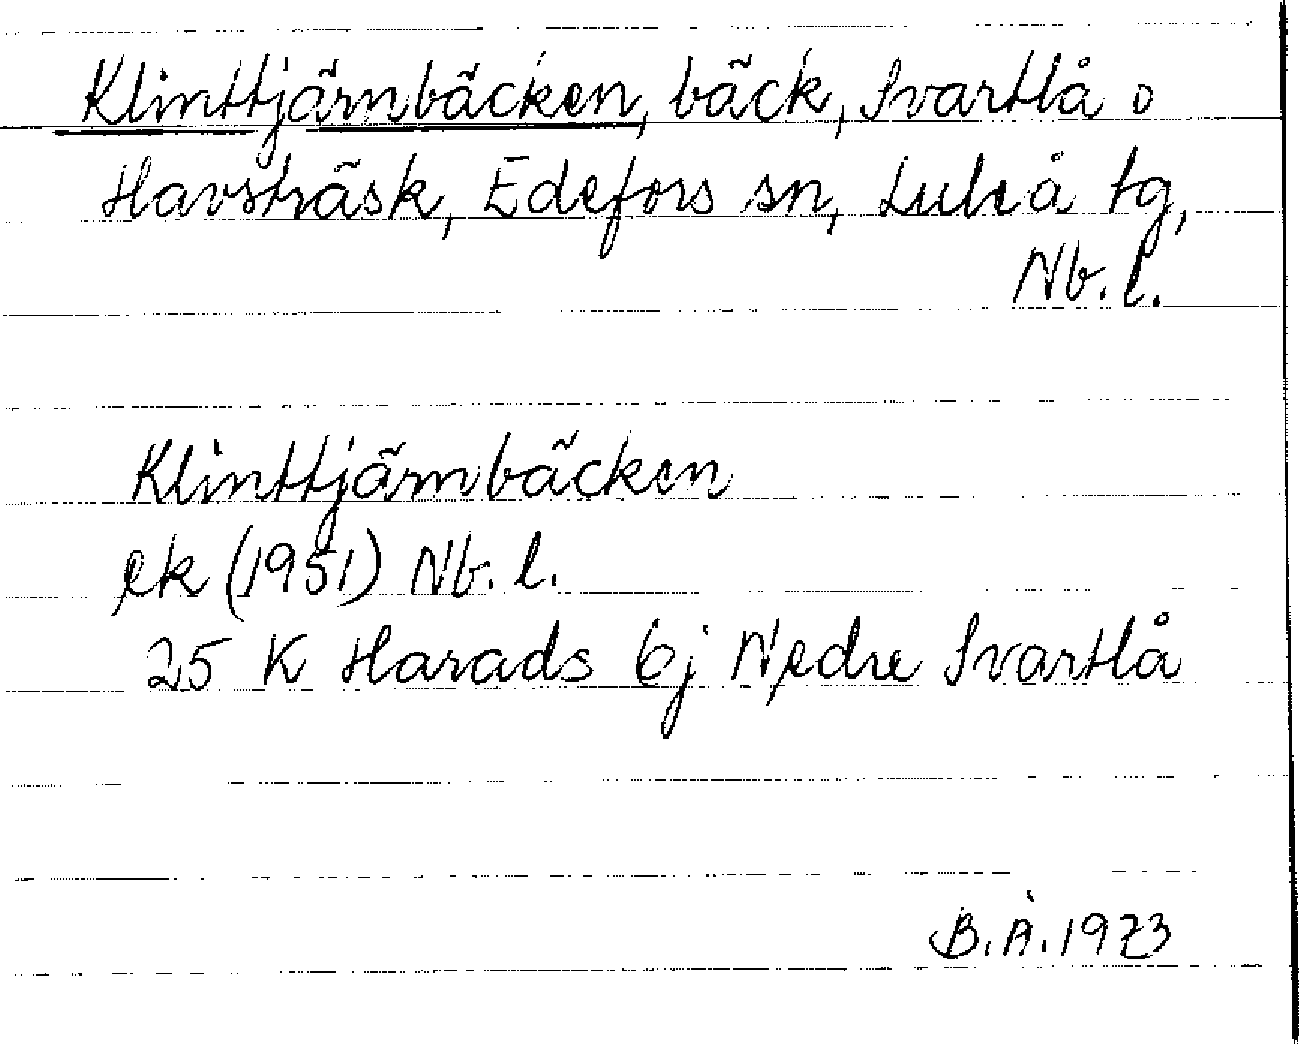 Klinttjärnbäcken, bäck, Svartlå o
Havsträsk, Edefors sn, Luleå tg,
Nb. l.
Klinttjärnbäcken
ek (1951) Nb. l.
25 K Harads 6j Nedre Svartlå
B. Å. 1973